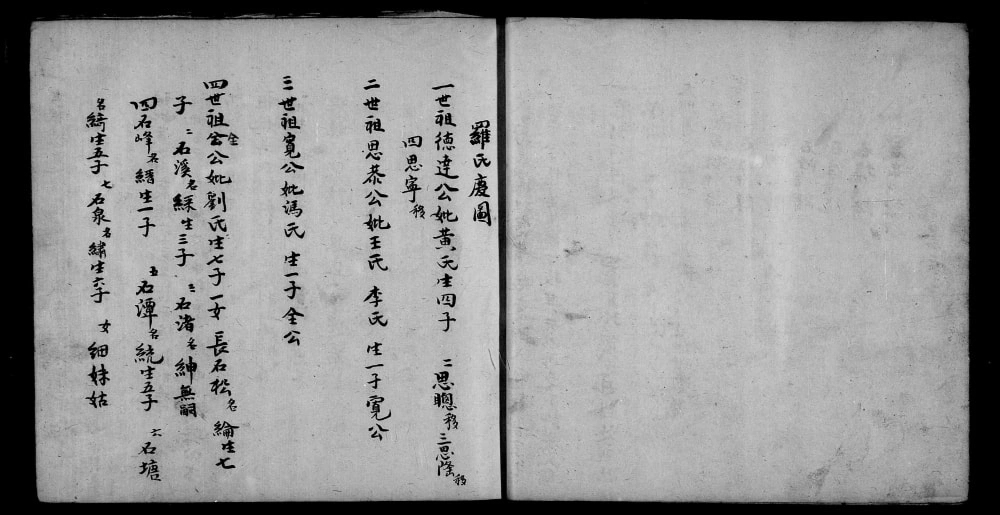 羅氏慶圖
一世祖德達公妣黃氏生四子 二思聰移三思隆移
四思寧移
二世祖思恭公妣王氏 李氏 生一子寬公
三世祖寬公妣馮氏 生一子全公
四世祖全公妣劉氏生七子一女 長石松名綸生七
子 二石溪名綵生三子 三石渚名紳無嗣
四石峰名縉生一子 五石潭名統生五子 六石塘
名綺生五子 七石泉名繡生六子 女細妹姑